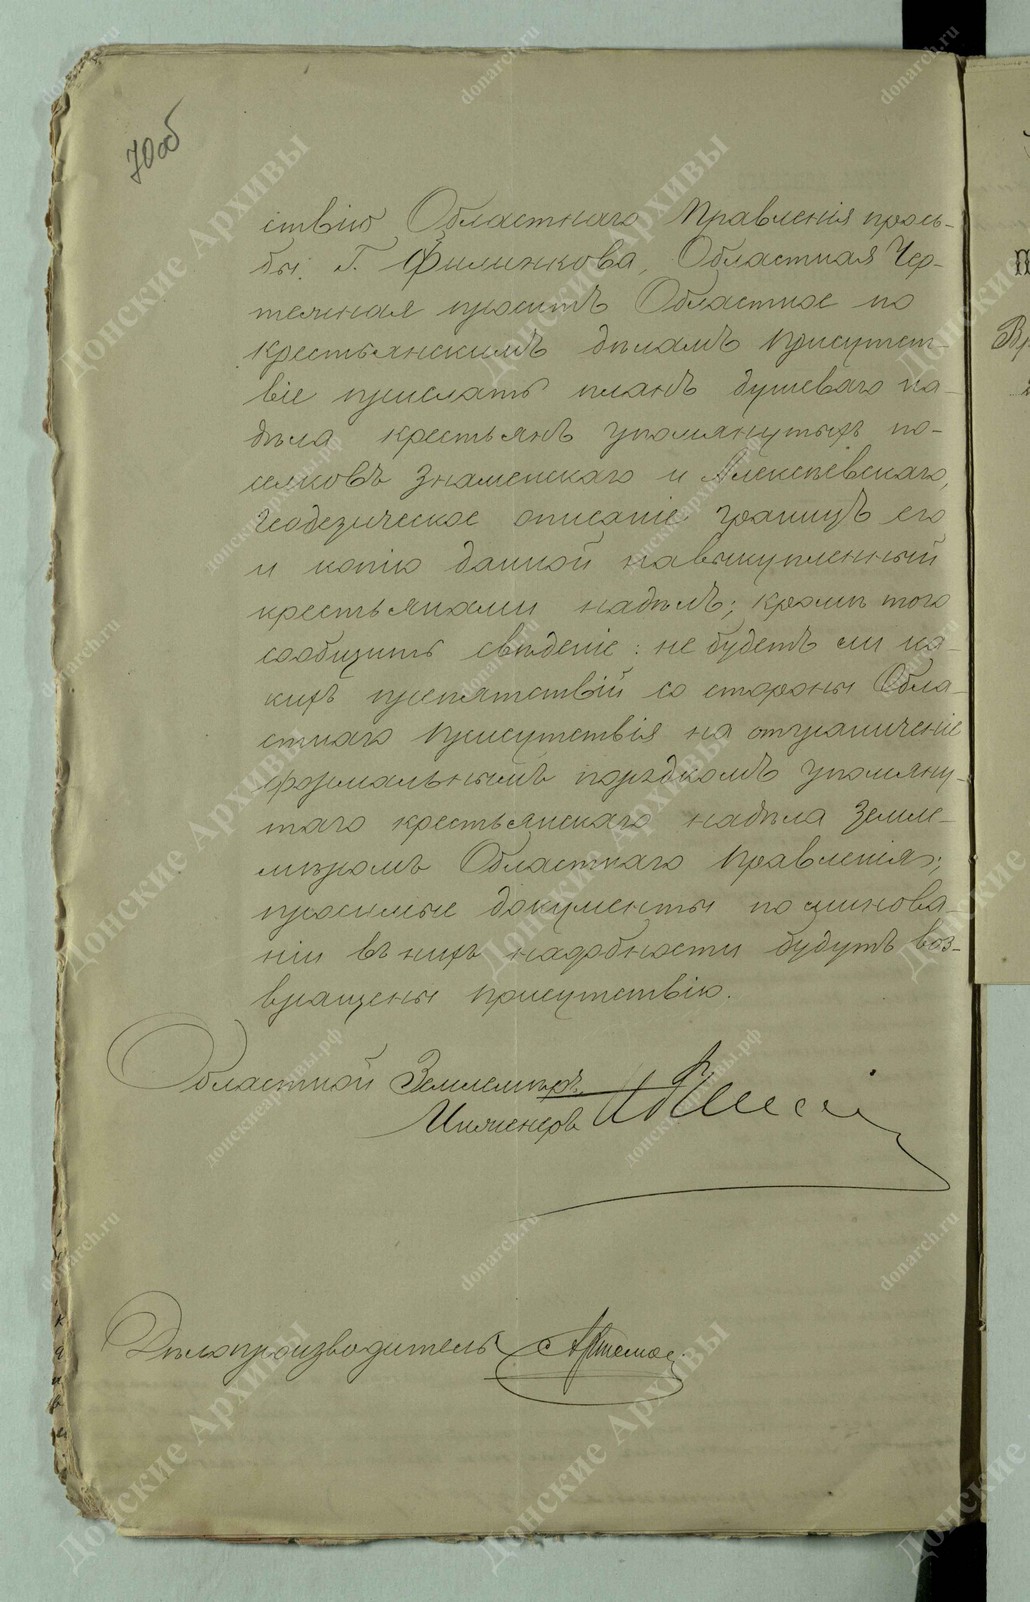 70об
ствію Областнаго Правленія прось-
бы Г. Филинкова, Областная Чер-
тежная проситъ Областное по
крестьянскимъ дѣламъ Присутст-
віе прислать планъ душеваго на-
дѣла крестьянъ упомянутыхъ по-
селковъ Знаменскаго и Алексѣевскаго,
геодезическое описаніе границъ его
и копію данной на выкупленный
крестьянами надѣлъ; кромѣ того
сообщить свѣденіе: не будетъ ли ка-
кихъ препятствій со стороны Обла-
стнаго Присутствія на отграниченіе
формальнымъ порядкомъ упомяну-
таго крестьянскаго надѣла Земле-
мѣромъ Областнаго Правленія;
просимые документы по минова-
ніи въ нихъ надобности будутъ воз-
вращены Присутствію.
Областной Землемѣръ,
Инженеръ
Дѣлопроизводитель